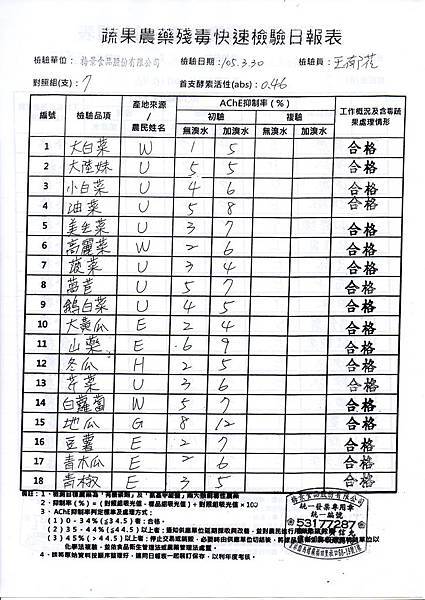 蔬果農藥殘毒快速檢驗日報表
檢驗單位： 裕景食品股份有限公司 檢驗日期：105.3.30 檢驗員：
對照組(支)：7 首支酵素活性(abs)：0.46
編號 檢驗品項 產地來源/農民姓名 AChE抑制率(%) 工作概況及含毒蔬果處理情形
初驗 複驗
無溴水 加溴水 無溴水 加溴水
1 大白菜 W 1 5 合格
2 大陸妹 U 5 5 合格
3 小白菜 U 4 6 合格
4 油菜 U 5 8 合格
5 美生菜 U 3 7 合格
6 高麗菜 W 2 6 合格
7 菠菜 U 3 4 合格
8 萵苣 U 5 7 合格
9 鵝白菜 U 4 5 合格
10 大黃瓜 E 2 4 合格
11 山藥 E 6 9 合格
12 冬瓜 H 2 5 合格
13 芹菜 U 3 6 合格
14 白蘿蔔 W 5 7 合格
15 地瓜 G 8 12 合格
16 豆薯 E 2 7 合格
17 青木瓜 E 2 6 合格
18 青椒 E 3 5 合格
2、抑制率(%)=(對照組吸光值-樣品組吸光值)÷對照組吸光值×100
3、AChE抑制判定標準及處理方式：
(1)0-34%(≦34.5)者：合格。
(2)35-44%(≦44.5)以上者：通知供應單位延期採收與改善，
(3)45%(>44.5)以上者：停止交易或銷毀，
統一發票專用章
統一編號
53177287